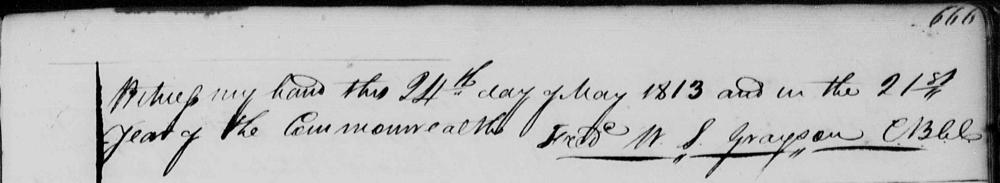 666
Witness my hand this 24th day of May 1813 and in the 21st
Year of the Commonwealth Fredc W. S. Grayson C.B.C.C.